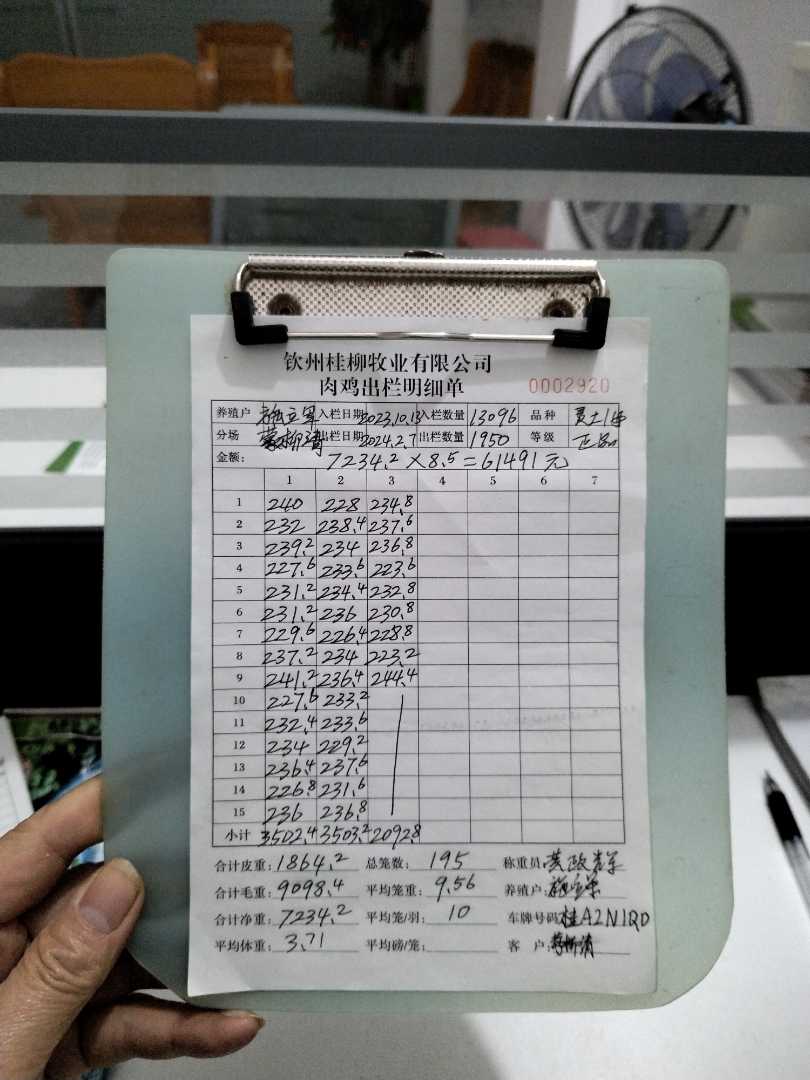 钦州桂柳牧业有限公司
肉鸡出栏明细单 0002920
养殖户 入栏日期 2023.10.13 入栏数量 13096 品种
分场 出栏日期 2024.2.7 出栏数量 1950 等级 正品
金额: 7234.2×8.5=61491元
1 2 3 4 5 6 7
1 240 228 234.8
2 232 238.4 237.6
3 239.2 234 236.8
4 227.6 233.6 223.6
5 231.2 234.4 232.8
6 231.2 236 230.8
7 229.6 226.4 228.8
8 237.2 234 223.2
9 241.2 236.4 244.4
10 227.6 233.2
11 232.4 233.6
12 234 229.2
13 236.4 237.6
14 226.8 231.6
15 236 236.8
小计 3502.4 3503.2 2092.8
合计皮重: 1864.2 总笼数: 195 称重员
合计毛重: 9098.4 平均笼重: 9.56 养殖户:
合计净重: 7234.2 平均笼/羽: 10 车牌号码 桂A2N1QD
平均体重: 3.71 平均磅/笼: 客 户: